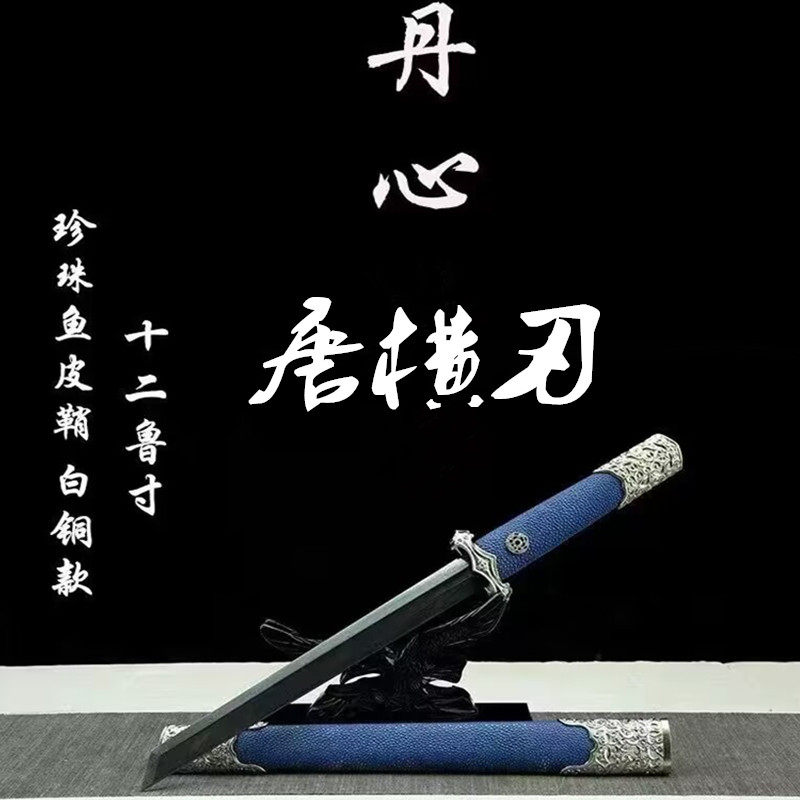 丹心
唐横刃
十二鲁寸
珍珠鱼皮鞘白铜款